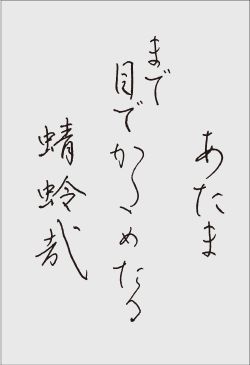 あたま
まで
目でかためたる
蜻蛉哉